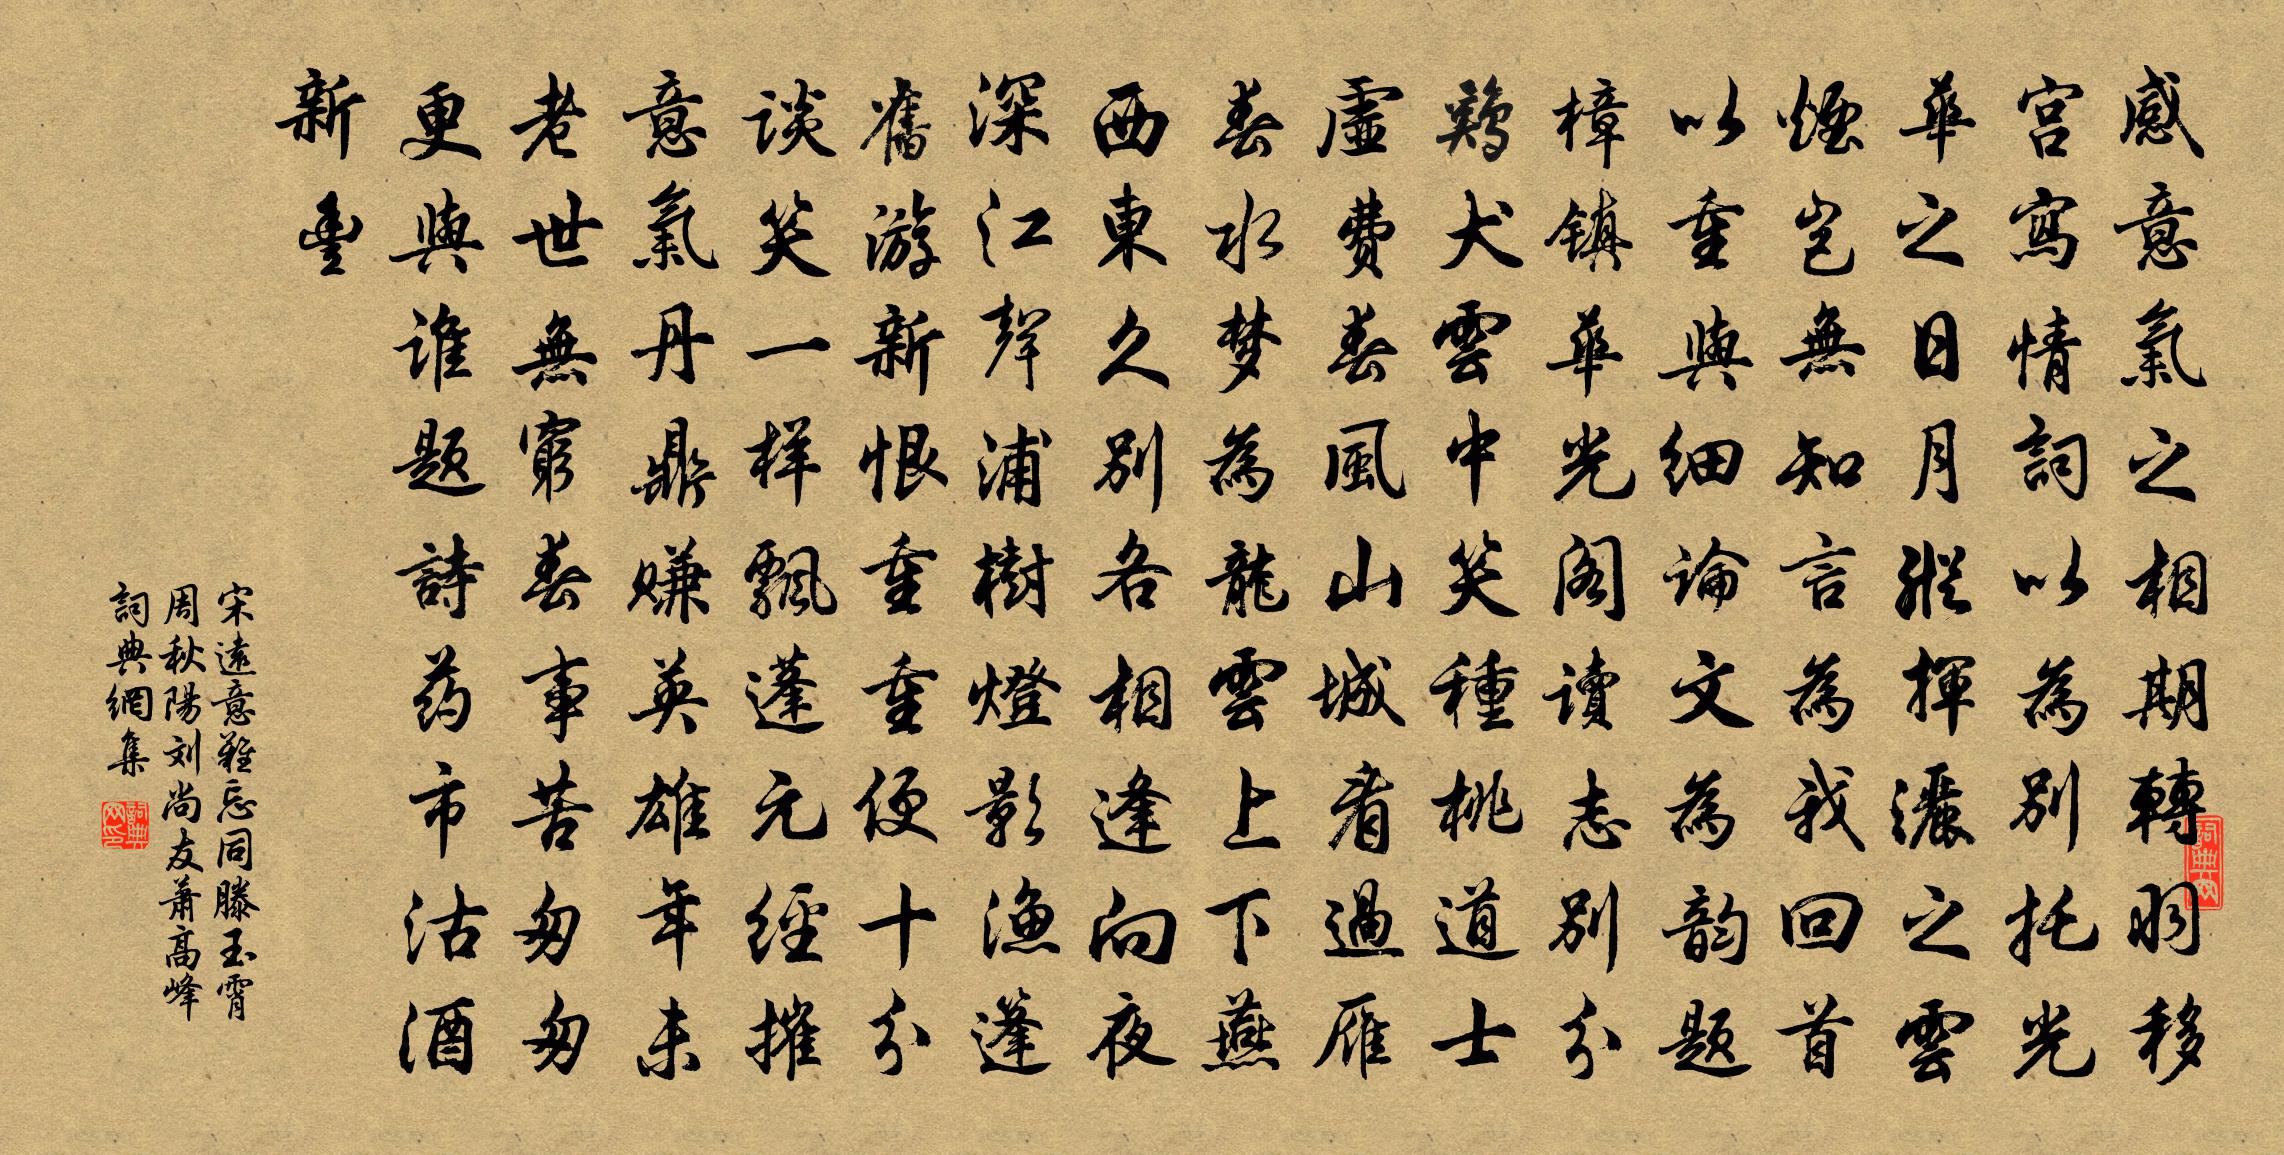 感意氣之相期轉羽移
宮寫情詞以為別托光
華之日月縱揮灑之雲
煙豈無知言為我回首
以重與細論文為韵題
樟鎮華光阁讀志別分
鷄犬雲中笑種桃道士
虛費春風山城看過雁
春水梦為龍雲上下燕
西東久別各相逢向夜
深江聲浦樹燈影漁篷
舊游新恨重重便十分
谈笑一样飄蓬元經摧
意氣丹鼎赚英雄年未
老世無窮春事苦匆匆
更與谁题詩药市沽酒
新豐
宋遠意難忘同滕玉霄
周秋陽刘尚友蕭高峰
詞典網集
詞典网
詞典网印